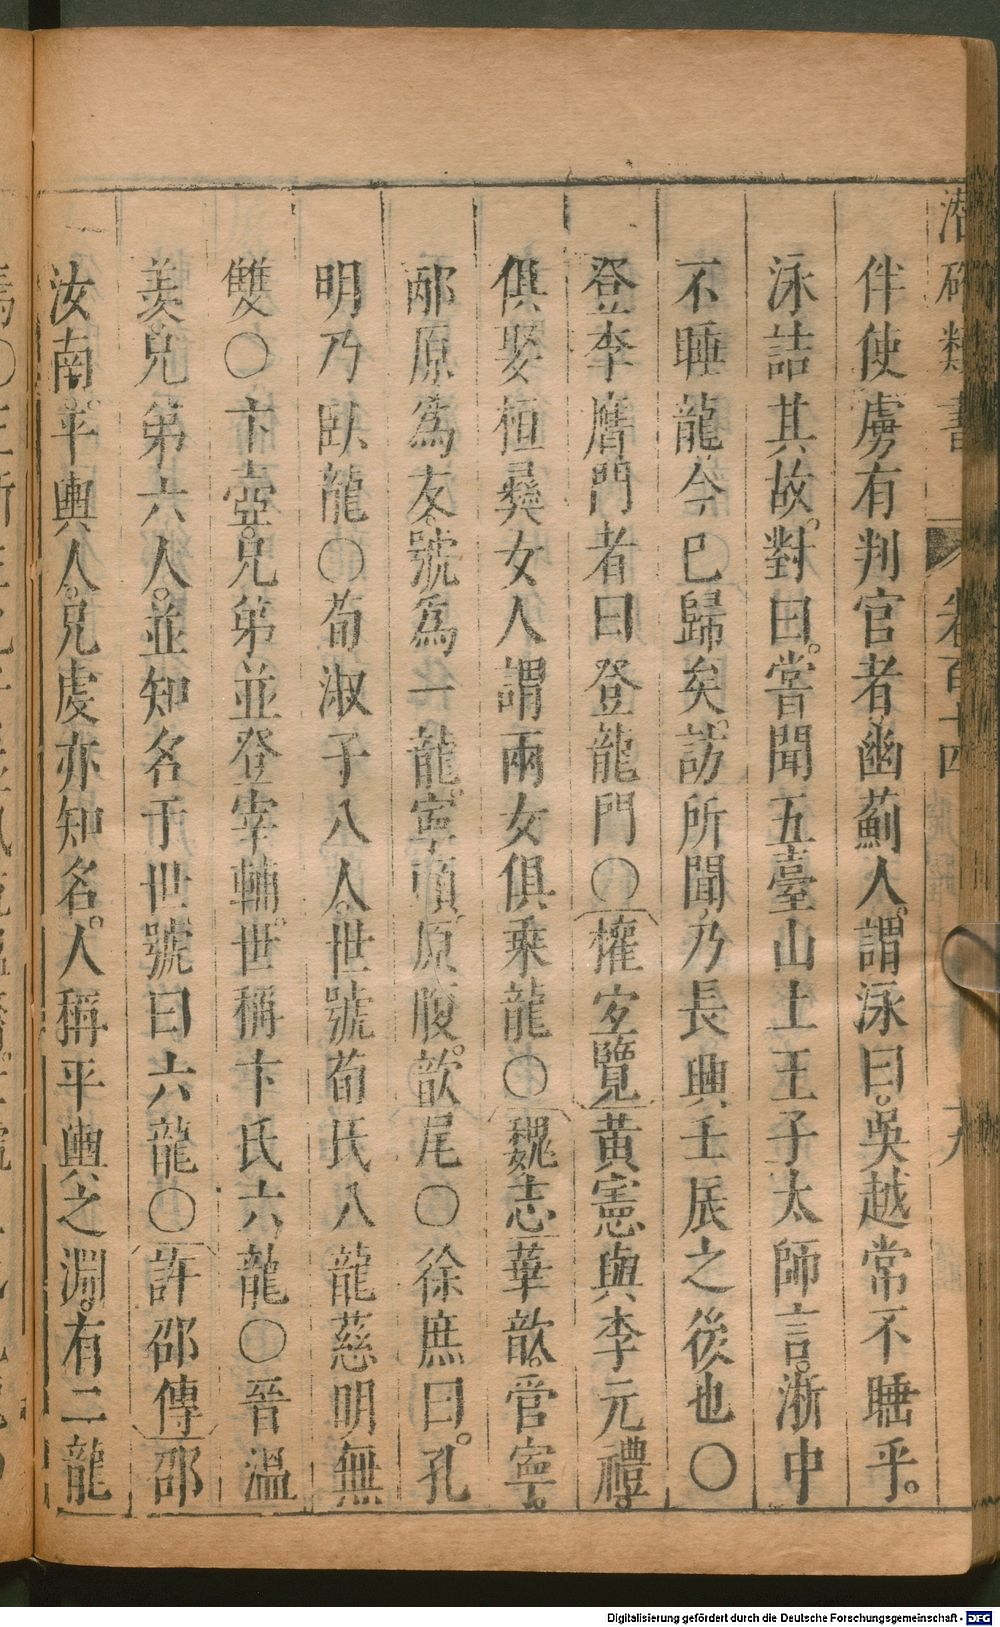 潛確類書 卷百十四 九
伴使虜有判官者幽薊人。謂泳曰。吳越常不睡乎。
泳詰其故。對曰。嘗聞五臺山土王子太師言。浙中
不睡龍今已歸矣。訪所聞乃長興壬辰之後也〇
登李膺門者曰登龍門〇權安覽黃憲與李元禮。
俱娶桓彛女人謂兩女俱乗龍〇魏志華歆。管寧。
邴原爲友。號爲一龍。寧項原腹。歆尾〇徐庶曰。孔
明乃臥龍〇荀淑子八人。世號荀氏八龍慈明無
雙〇卞壼。兄弟並登宰輔。世稱卞氏六龍〇晉溫
羨兄弟六人。並知名于世號曰六龍〇許邵傳邵
汝南。平輿人。兄虔亦知名。人稱平輿之淵。有二龍
Digitalisierung gefördert durch die Deutsche Forschungsgemeinschaft - DFG